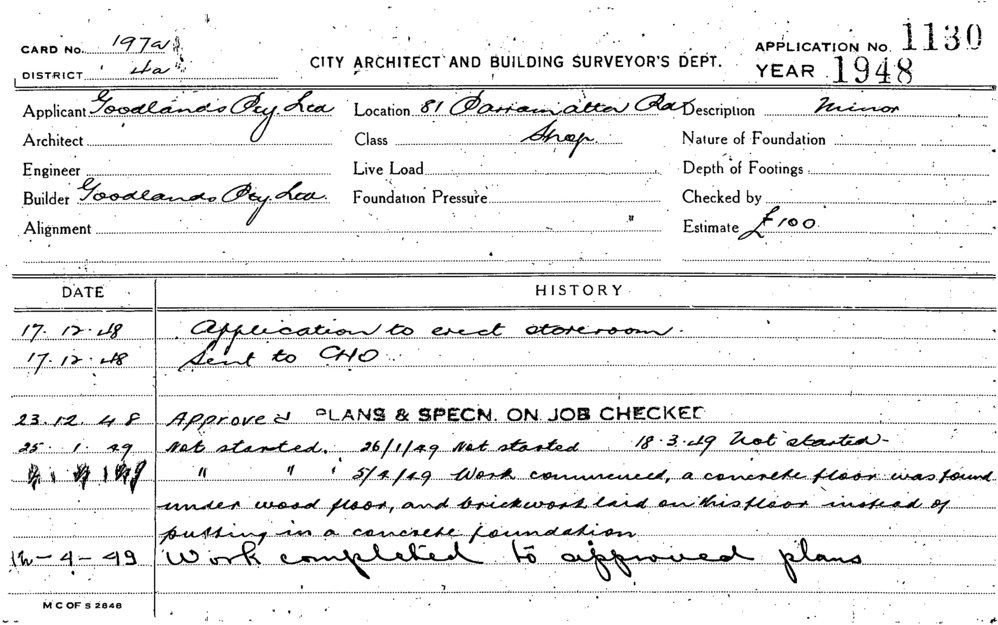 CARD No. 197a
DISTRICT 4a
CITY ARCHITECT AND BUILDING SURVEYOR'S DEPT.
APPLICATION No. 1130
YEAR 1948
Applicant Goodlands Pty. Ltd Location 81 Parramatta Rd Description Minor
Architect Class Shop Nature of Foundation
Engineer Live Load Depth of Footings
Builder Goodlands Pty. Ltd. Foundation Pressure Checked by
Alignment " Estimate £100
DATE HISTORY
17.12.48 Application to erect storeroom.
17.12.48 Sent to CHO
23.12.48 Approved PLANS & SPECN. ON JOB CHECKED
25.1.49 Not started. 26/1/49 Not started 18.3.49 Not started
" " " 5/4/49 Work commenced, a concrete floor was found
under wood floor, and brickwork laid on this floor instead of
putting in a concrete foundation
12-4-49 Work completed to approved plans
M C OF S 2848